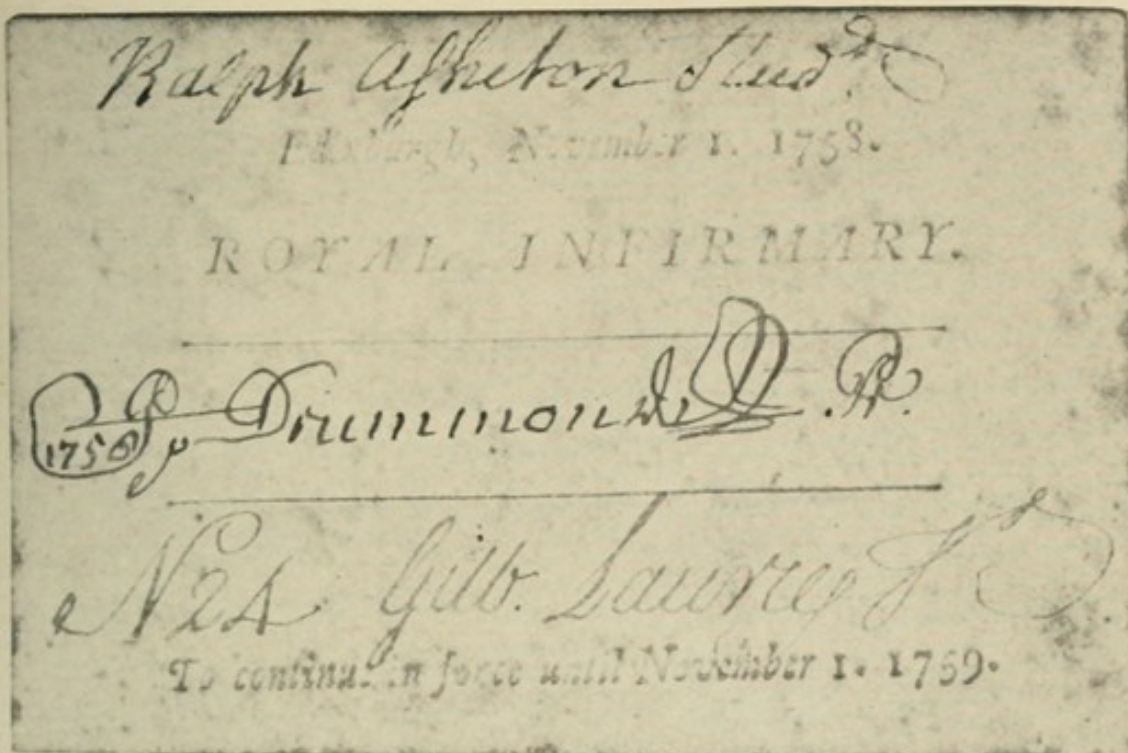 Ralph Asheton Stud.ᵗ
Edinburgh, November 1. 1758.
ROYAL INFIRMARY.
1758 Drummond Pr.
N 24 Gilb. Laurie
To continue in force until November 1. 1759.